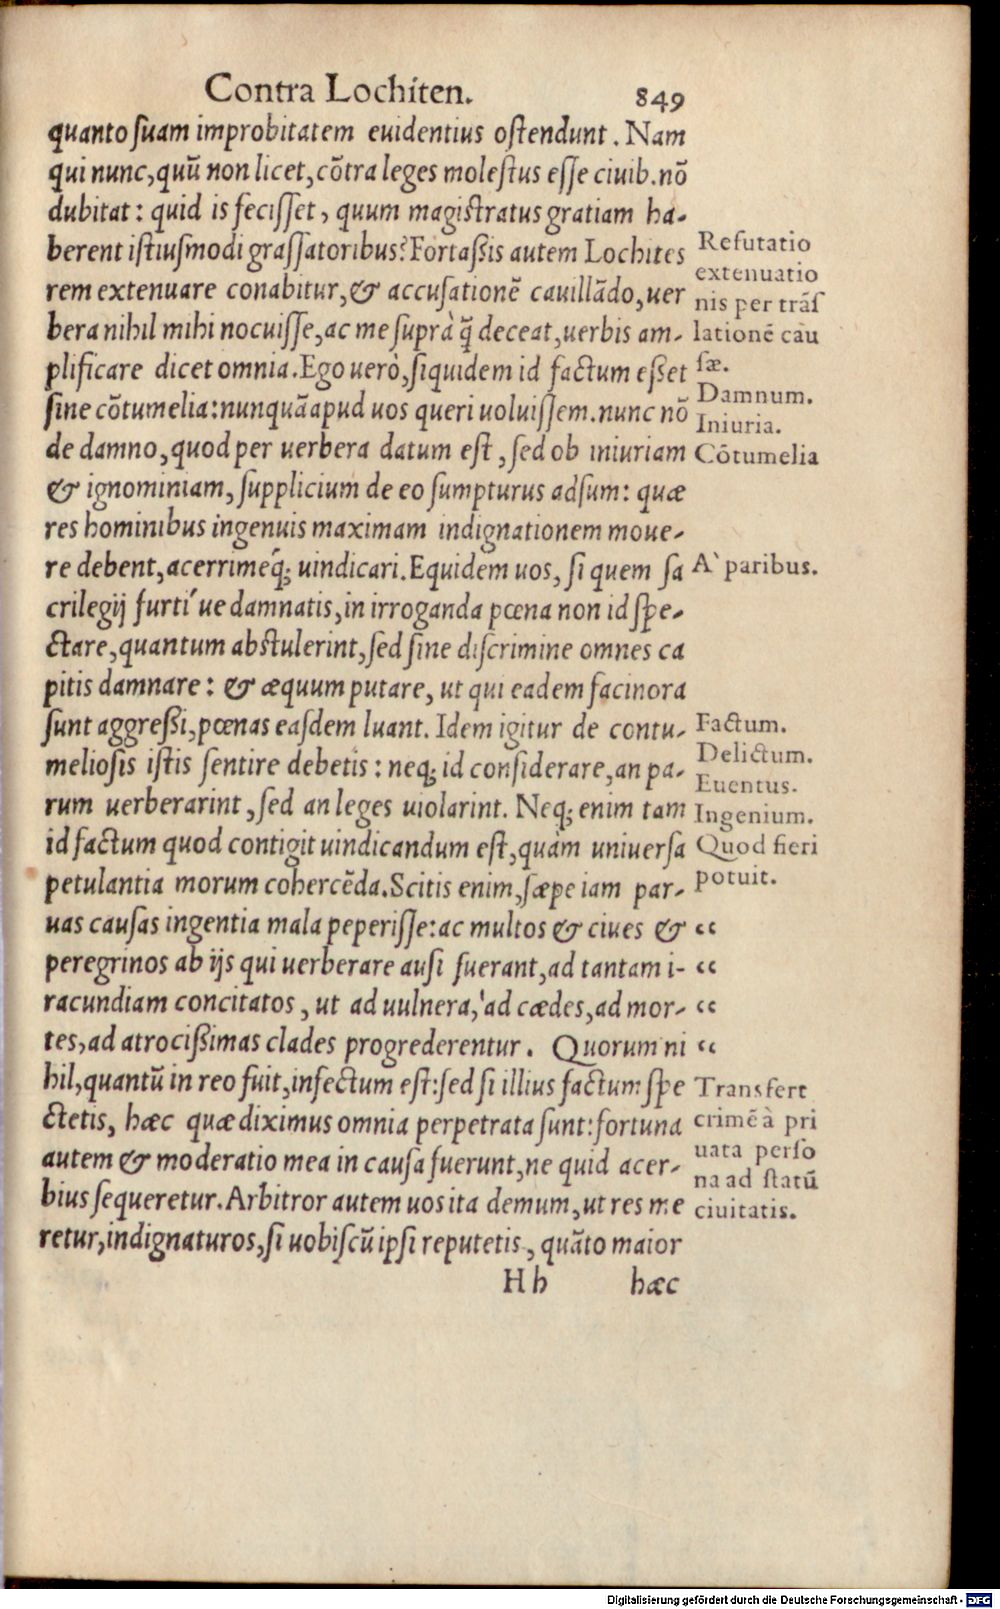 Contra Lochiten. 849
quanto ſuam improbitatem euidentius oſtendunt. Nam
qui nunc, quũ non licet, cõtra leges moleſtus eſſe ciuib. nõ
dubitat: quid is feciſſet, quum magiſtratus gratiam ha-
berent iſtiuſmodi graſſatoribus? Fortaßis autem Lochites
rem extenuare conabitur, & accuſationẽ cauillãdo, uer
bera nihil mihi nocuiſſe, ac me ſuprà q̃ deceat, uerbis am-
plificare dicet omnia. Ego uerò, ſiquidem id factum eßet
ſine cõtumelia: nunquã apud uos queri uoluiſſem. nunc nõ
de damno, quod per uerbera datum eſt, ſed ob iniuriam
& ignominiam, ſupplicium de eo ſumpturus adſum: quæ
res hominibus ingenuis maximam indignationem moue-
re debent, acerrimeq́; uindicari. Equidem uos, ſi quem ſa
crilegij furti´ue damnatis, in irroganda pœna non id ſpe-
ctare, quantum abſtulerint, ſed ſine diſcrimine omnes ca
pitis damnare: & æquum putare, ut qui eadem facinora
ſunt aggreßi, pœnas eaſdem luant. Idem igitur de contu-
melioſis iſtis ſentire debetis: neq; id conſiderare, an pa-
rum uerberarint, ſed an leges uiolarint. Neq; enim tam
id factum quod contigit uindicandum eſt, quàm uniuerſa
petulantia morum cohercẽda. Scitis enim, ſæpe iam par-
uas cauſas ingentia mala peperiſſe: ac multos & ciues &
peregrinos ab ijs qui uerberare auſi fuerant, ad tantam i-
racundiam concitatos, ut ad uulnera, ad cædes, ad mor-
tes, ad atrocißimas clades progrederentur. Quorum ni
hil, quantũ in reo fuit, infectum eſt: ſed ſi illius factum ſpe
ctetis, hæc quæ diximus omnia perpetrata ſunt: fortuna
autem & moderatio mea in cauſa fuerunt, ne quid acer-
bius ſequeretur. Arbitror autem uos ita demum, ut res me
retur, indignaturos, ſi uobiſcũ ipſi reputetis, quãto maior
H h hæc
Refutatio
extenuatio
nis per trãſ
lationẽ cau
ſæ.
Damnum.
Iniuria.
Cõtumelia
A` paribus.
Factum.
Delictum.
Euentus.
Ingenium.
Quod fieri
potuit.
“
“
“
“
Transfert
crimẽ à pri
uata perſo
na ad ſtatũ
ciuitatis.
Digitalisierung gefördert durch die Deutsche Forschungsgemeinschaft - DFG